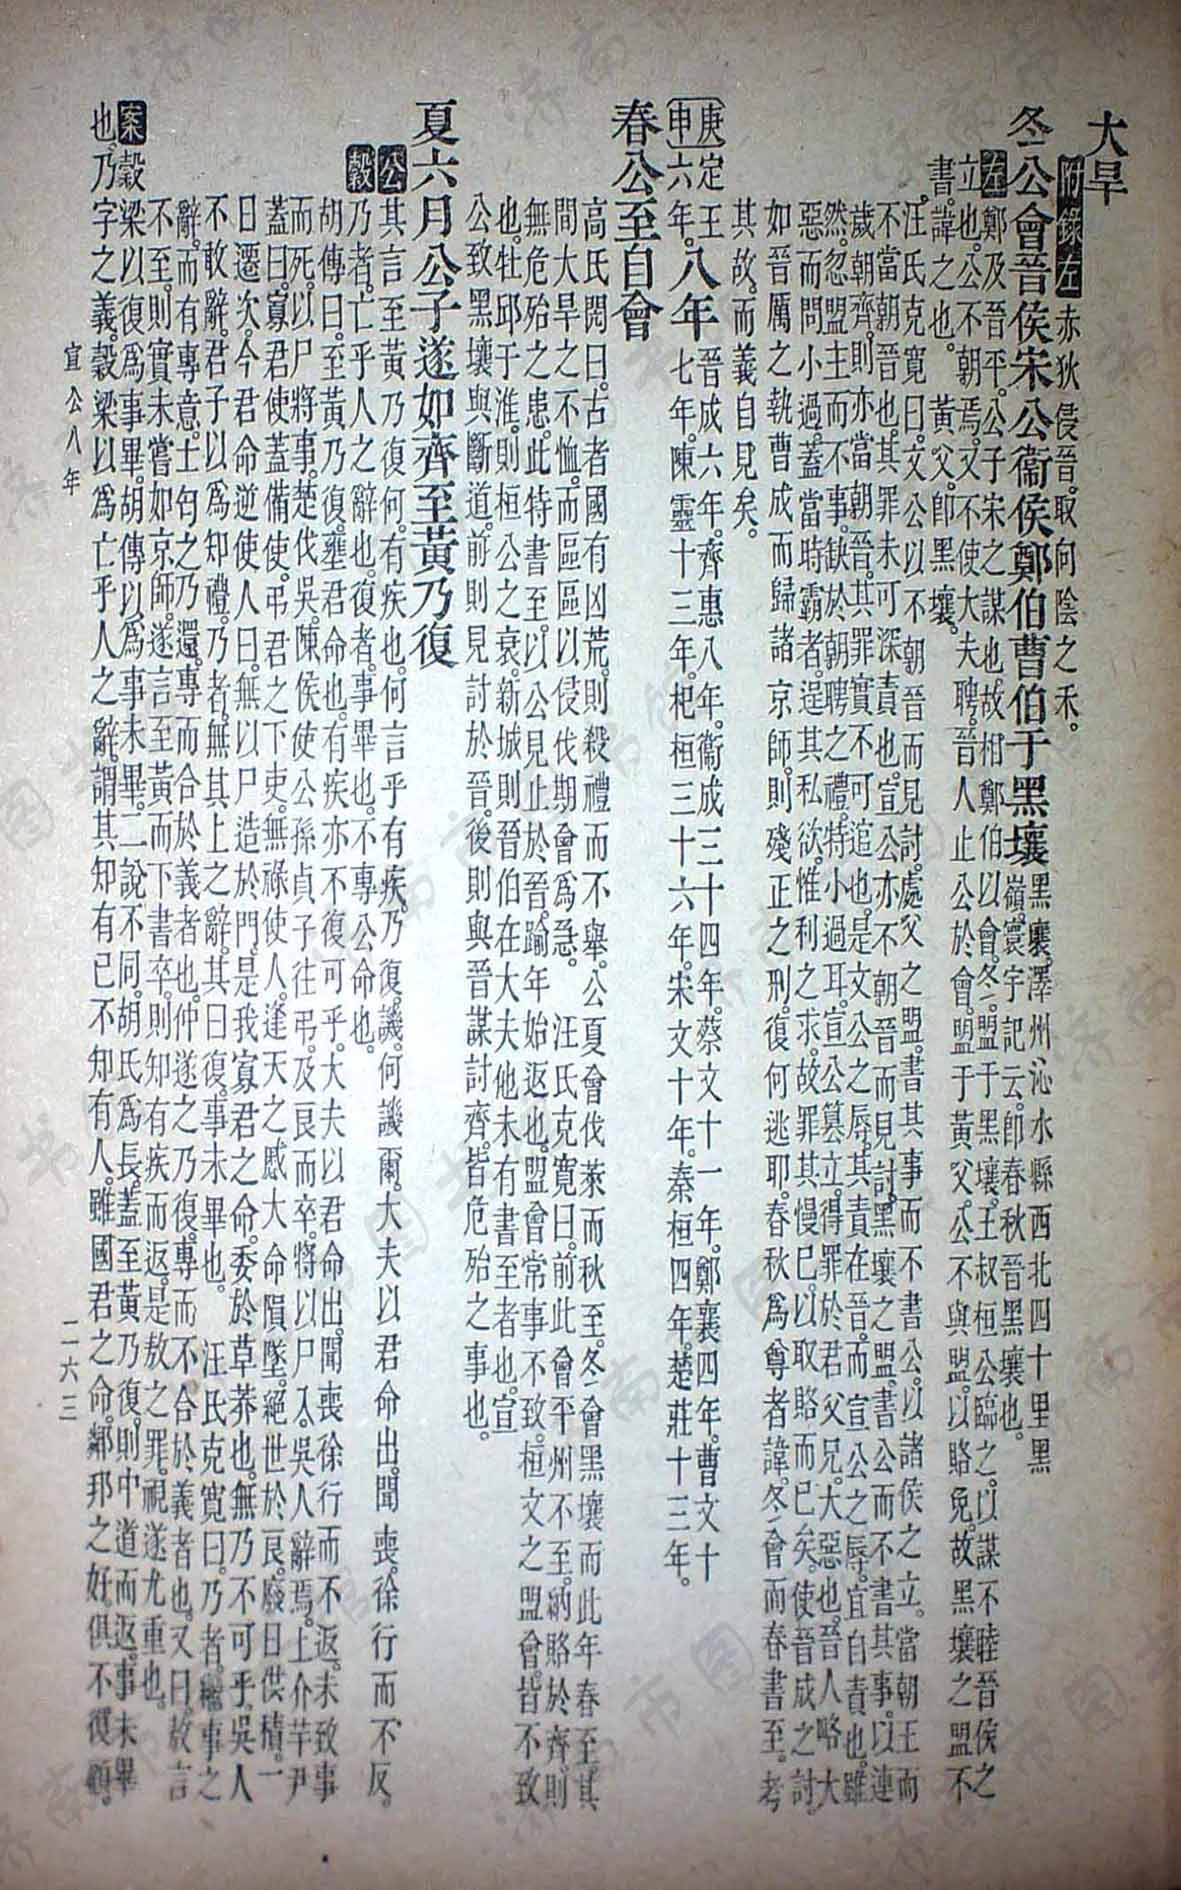 大旱
附錄左赤狄侵晉。取向陰之禾。
冬公會晉侯宋公衞侯鄭伯曹伯于黑壤黑壤。澤州沁水縣西北四十里黑
嶺。寰宇記云。卽春秋晉黑壤也。
左鄭及晉平。公子宋之謀也。故相鄭伯以會。冬盟于黑壤。王叔桓公臨之。以謀不睦。晉侯之
立也。公不朝焉。又不使大夫聘。晉人止公於會。盟于黃父。公不與盟。以賂免。故黑壤之盟不
書。諱之也。 黃父。卽黑壤。
汪氏克寬曰。文公以不朝晉而見討。處父之盟。書其事而不書公。以諸侯之立。當朝王而
不當朝晉也。其罪未可深責也。宣公亦不朝晉而見討。黑壤之盟。書公而不書其事。以連
歲朝齊。則亦當朝晉。其罪實不可追也。是文公之辱。其責在晉。而宣公之辱。宜自責也。雖
然。忽盟主而不事。缺於朝聘之禮。特小過耳。宣公篡立。得罪於君父兄。大惡也。晉人略大
惡而問小過。蓋當時霸者。逞其私欲。惟利之求。故罪其慢已。以取賂而已矣。使晉成之討。
如晉厲之執曹成而歸諸京師。則殘正之刑。復何逃耶。春秋爲尊者諱。冬會而春書至。考
其故。而義自見矣。
庚申定王六年。八年晉成六年。齊惠八年。衞成三十四年。蔡文十一年。鄭襄四年。曹文十
七年。陳靈十三年。杞桓三十六年。宋文十年。秦桓四年。楚莊十三年。
春公至自會
高氏閌曰。古者國有凶荒。則殺禮而不舉。公夏會伐萊而秋至。冬會黑壤而此年春至。其
問大旱之不恤。而區區以侵伐期會爲急。 汪氏克寬曰。前此會平州不至。納賂於齊。則
無危殆之患。此特書至。以公見止於晉。踰年始返也。盟會常事不致。桓文之盟會。皆不致
也。牡邱于淮。則桓公之衰。新城則晉伯在大夫。他未有書至者也。宣
公致黑壤與斷道。前則見討於晉。後則與晉謀討齊。皆危殆之事也。
夏六月公子遂如齊至黃乃復
公其言至黃乃復何。有疾也。何言乎有疾。乃復。譏。何譏爾。大夫以君命出。聞喪。徐行而不反。
穀乃者。亡乎人之辭也。復者。事畢也。不專公命也。
胡傳曰。至黃乃復。壅君命也。有疾亦不復可乎。大夫以君命出。聞喪徐行而不返。未致事
而死。以尸將事。楚伐吳。陳侯使公孫貞子往弔。及良而卒。將以尸入。吳人辭焉。上介芋尹
蓋曰。寡君使蓋備使。弔君之下吏。無祿使人。逢天之慼。大命隕墜。絕世於良。廢日供積。一
日遷次。今君命逆使人曰。無以尸造於門。是我寡君之命。委於草莽也。無乃不可乎。吳人
不敢辭。君子以爲知禮。乃者。無其上之辭。其曰復。事未畢也。 汪氏克寬曰。乃者。繼事之
辭。而有專意。士匄之乃還。專而合於義者也。仲遂之乃復。專而不合於義者也。又曰。敖言
不至。則實未嘗如京師。遂言至黃而下書卒。則知有疾而返。是敖之罪。視遂尤重也。
案穀梁以復爲事畢。胡傳以爲事未畢。二說不同。胡氏爲長。蓋至黃乃復。則中道而返。事未畢
也。乃字之義。穀梁以爲亡乎人之辭。謂其知有已不知有人。雖國君之命。鄰邦之好。俱不復顧。
宣公八年
二六三